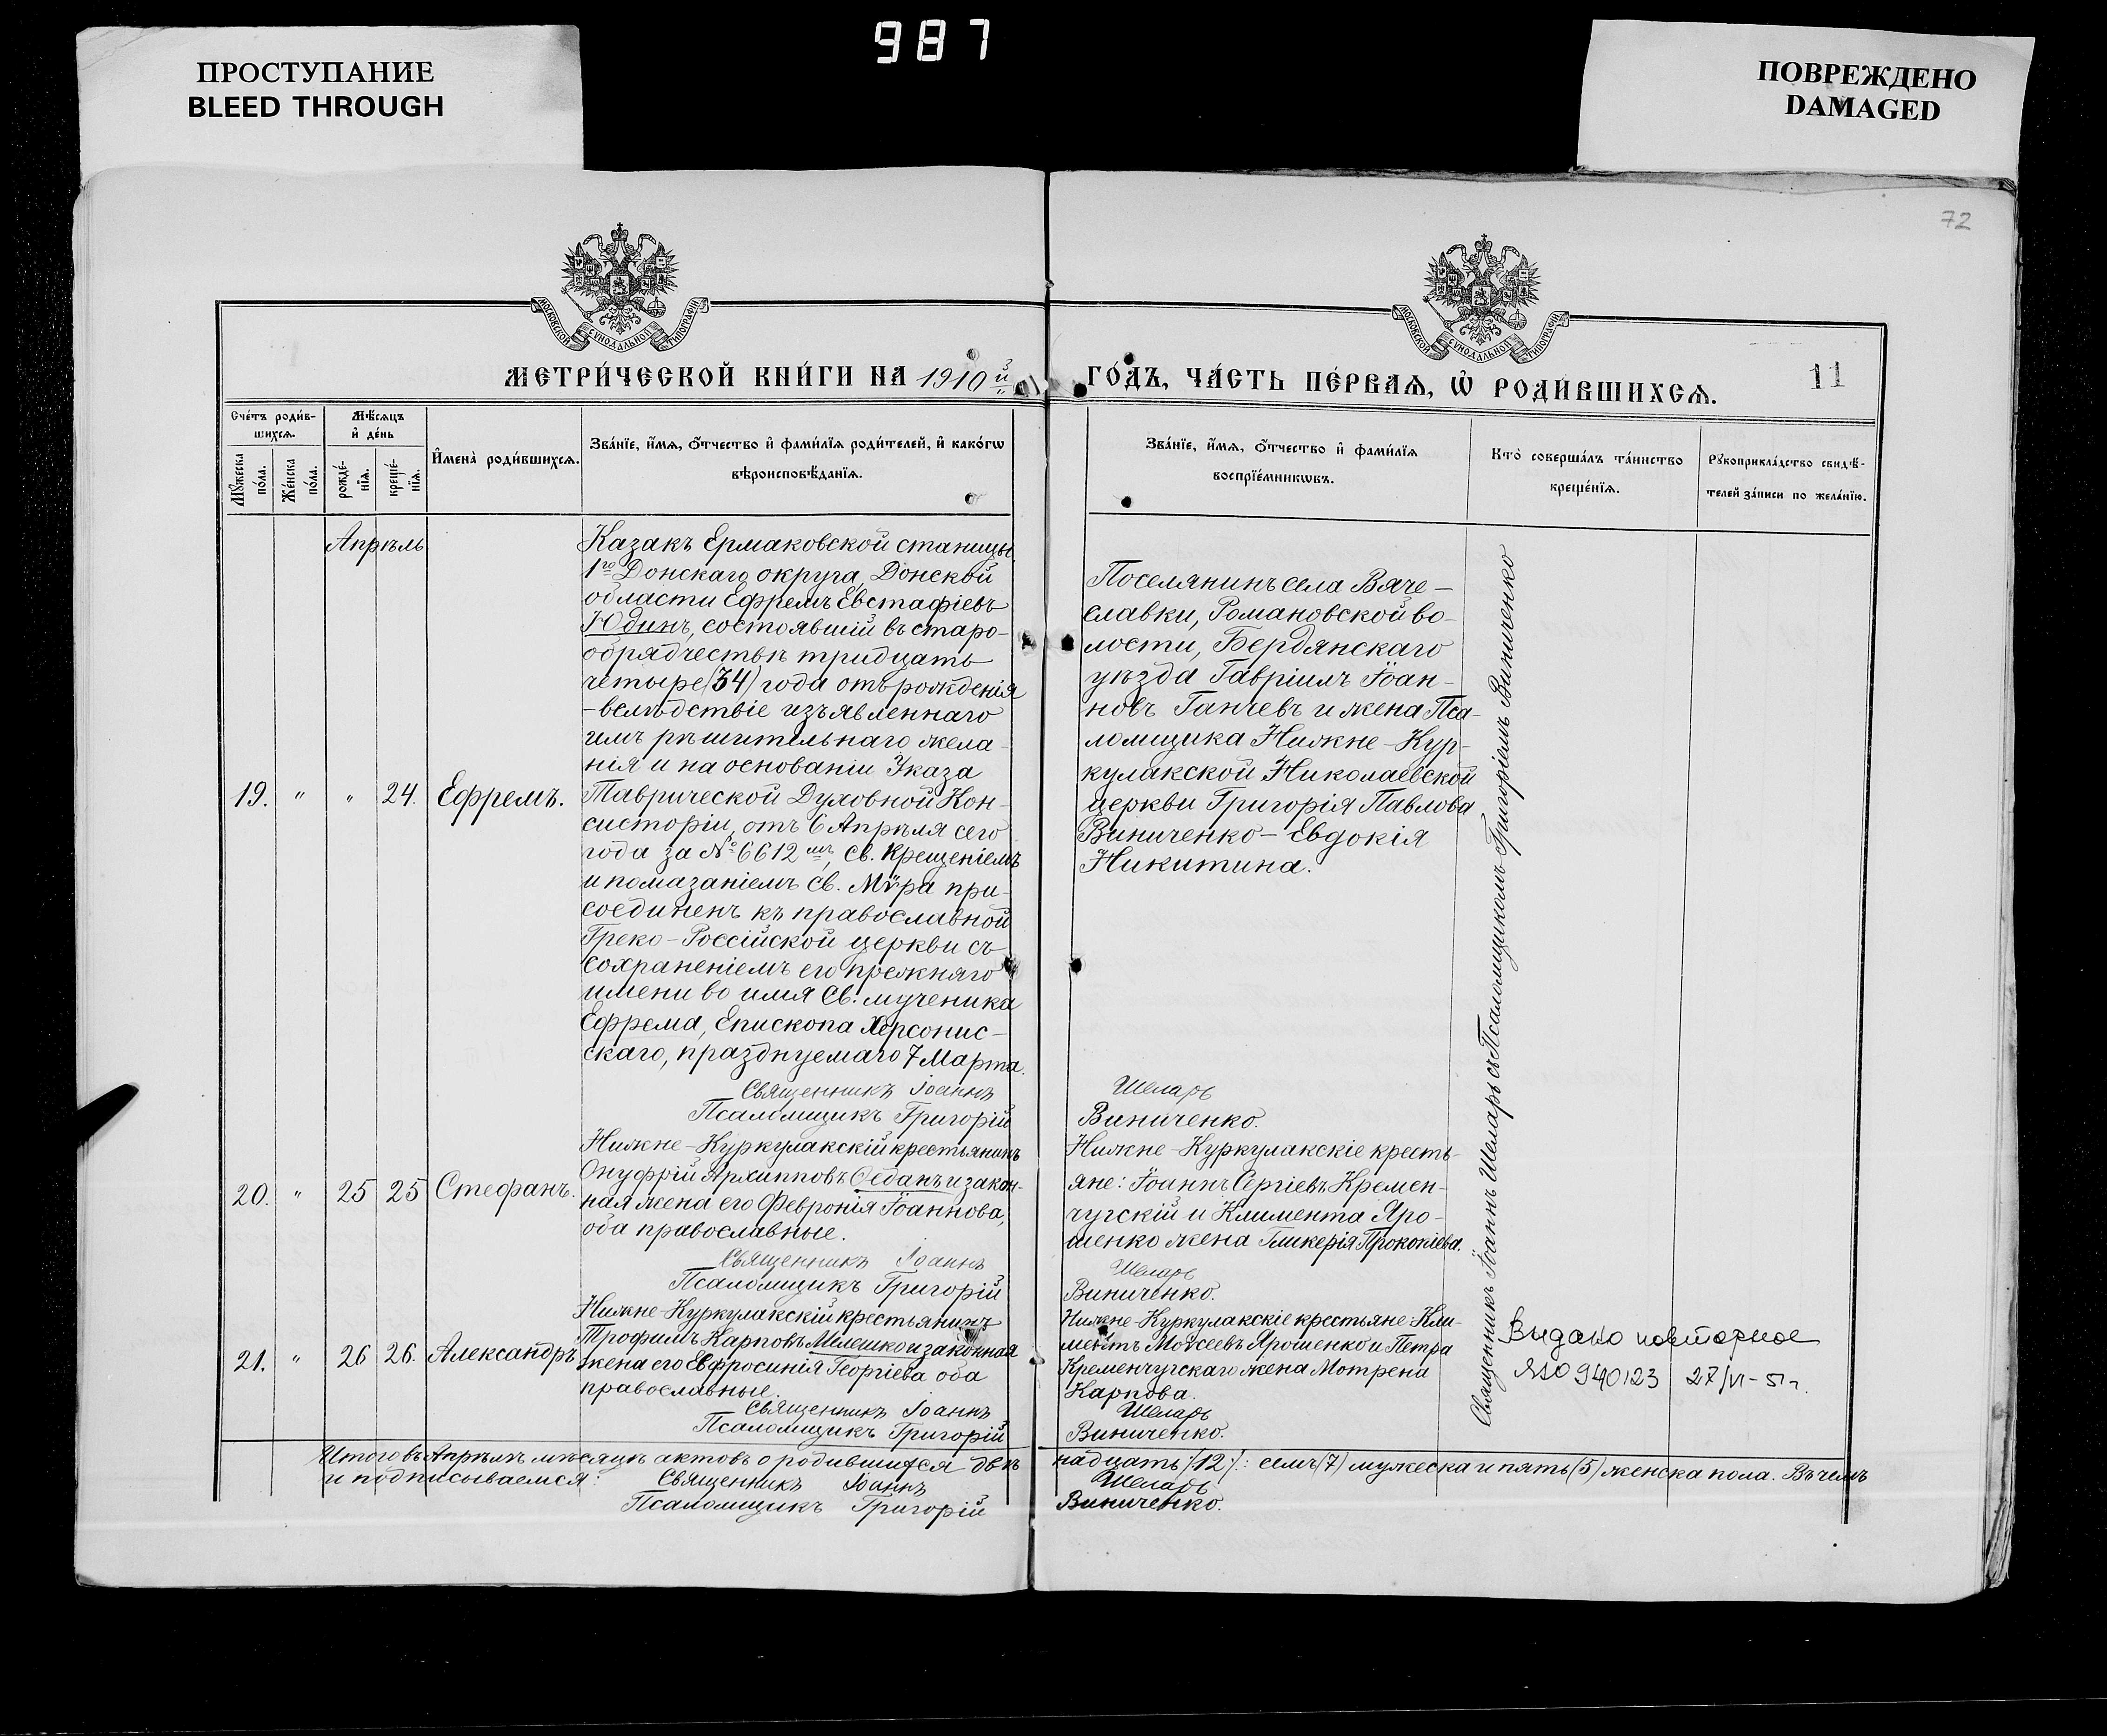 987
ПРОСТУПАНИЕ
BLEED THROUGH
ПОВРЕЖДЕНО
DAMAGED
72
МОСКОВСКОЙ СУНОДАЛЬНОЙ ТИПОГРАФІИ
МОСКОВСКОЙ СУНОДАЛЬНОЙ ТИПОГРАФІИ
МЕТРИ́ЧЕСКОЙ КНИ́ГИ НА 1910й
ГО́ДЪ, ЧА́СТЬ ПЕ́РВАѦ, Ѡ҆ РОДИ́ВШИХСѦ.
11
Сче́тъ роди́в-
шихсѧ.
Мꙋ́жеска по́ла.
Же́нска по́ла.
Мѣ́сѧцъ
и҆ де́нь
рожде́-
нїѧ.
креще́-
нїѧ.
И҆мена̀ роди́вшихсѧ.
Зва́нїе, и҆́мѧ, ѻ҆́тчество и҆ фами́лїѧ роди́телей, и҆ како́гѡ
вѣроисповѣ́данїѧ.
Зва́нїе, и҆́мѧ, ѻ҆́тчество и҆ фами́лїѧ
воспрїе́мникѡвъ.
Кто̀ соверша́лъ та́инство
креще́нїѧ.
Рꙋкоприкла́дство свидѣ́-
телей за́писи по жела́нїю.
Апрѣль
19. " " 24. Ефремъ.
Казакъ Ермаковской станицы
1го Донскаго округа, Донской
области Ефремъ Евстафіевъ
Юдинъ, состоявшій въ старо-
обрядчествѣ тридцать
четыре (34) года отъ рожденія
-вслѣдствіе изъявленнаго
имъ рѣшительнаго жела-
нія и на основаніи Указа
Таврической Духовной Кон-
систоріи, отъ 6 Апрѣля сего
года за № 6612мъ, св. Крещеніемъ
и помазаніемъ св. Мѵра при-
соединенъ къ православной
Греко-Россійской церкви съ
сохраненіемъ его прежняго
имени во имя св. мученика
Ефрема, Епископа Херсонис-
скаго, празднуемаго 7 Марта.
Священникъ Іоаннъ
Псаломщикъ Григорій
Поселянинъ села Вяче-
славки, Романовской во-
лости, Бердянскаго
уѣзда Гавріилъ Іоан-
новъ Ганчевъ и жена Пса-
ломщика Нижне-Кур-
кулакской Николаевской
церкви Григорія Павлова
Виниченко- Евдокія
Никитина.
Шеларь
Виниченко.
20. " 25 25 Стефанъ.
Нижне-Куркулакскій крестьянинъ
Онуфрій Архипповъ Седанъ и закон-
ная жена его Февронія Іоаннова,
оба православные.
Священникъ Іоаннъ
Псаломщикъ Григорій
Нижне-Куркулакскіе кресть-
яне: Іоаннъ Сергіевъ Кремен-
чугскій и Климента Яро-
шенко жена Гликерія Прокопіева.
Шеларь
Виниченко.
21. " 26 26. Александръ
Нижне-Куркулакскій крестьянинъ
Трофимъ Карповъ Мелешко и законная
жена его Евфросинія Георгіева оба
православные.
Священникъ Іоаннъ
Псаломщикъ Григорій
Нижне-Куркулакскіе крестьяне Кли-
ментъ Моѵсеевъ Ярошенко и Петра
Кременчугскаго жена Мотрена
Карпова.
Шеларь
Виниченко.
Священникъ Іоаннъ Шеларь съ Псаломщикомъ Григоріемъ Виниченко
Видано повторное
ЯЮ 940123 27/VI-51г.
Итого въ Апрѣлѣ мѣсяцѣ актовъ о родившихся двѣ
надцать /12/: семь (7) мужеска и пять (5) женска пола. Въ чемъ
и подписываемся: Священникъ Іоаннъ Шеларь
Псаломщикъ Григорій Виниченко.